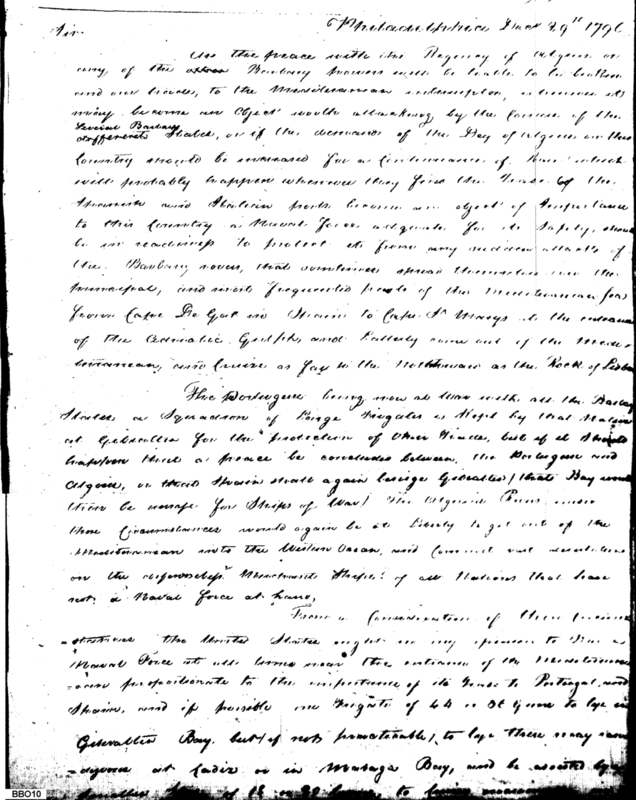 Philadelphia Decr 29th 1796
Sir
As the peace with the Regency of Algiers or
any of the Barbary powers will be liable to be broken
and our trade, to the Mediterranean interrupted, whenever it
may become an Object worth attacking by the Cruisers of the
Several Barbary
different States, or if the demands of the Dey of Algiers on this
Country should be increased for a Continuance of Peace which
will probably happen whenever they find the Trade of the
Spanish and Italian ports become an object of Importance
to this Country a Naval force adequate for its Safety, should
be in readiness to protect it from any sudden attacks of
the Barbary rovers, that sometimes spread themselves over the
principal, and most frequented parts of the Mediterranean Sea
from Cape De Gat in Spain to Cape St Marys at the entrance
of the Adriatic Gulph, and Latterly come out of the Medi-
terranean, and Cruise as far to the Northward as the Rock of Lisbon
The Portuguese being now at War with all the Barbary
States a Squadron of Large Frigates is Kept by that Nation
at Gibralter for the protection of their Trade, but if it should
happen that a peace be concluded between the Portuguese and
Algiers, or that Spain should again besiege Gibralter (that Bay would
then be unsafe for Ships of War) The Algerine under
those Circumstances would again be at Liberty to get out of the
Mediterranean into the Western Ocean, and Commit
on the defenceless Merchant Ships of all Nations that have
not a Naval force at hand,
From a Consideration of these
the United States ought in my opinion to have a
Naval Force at all times near the entrance of the Mediterra-
-nean proportionate to the importance of its Trade to Portugal and
Spain, and if possible one Frigate of 44 or 36 Guns to lye in
Gibralter Bay, but (if not practicable) to lye there
at Cadiz or in Malaga Bay, and be assisted by
of 18 or 20 Guns to
BBO10